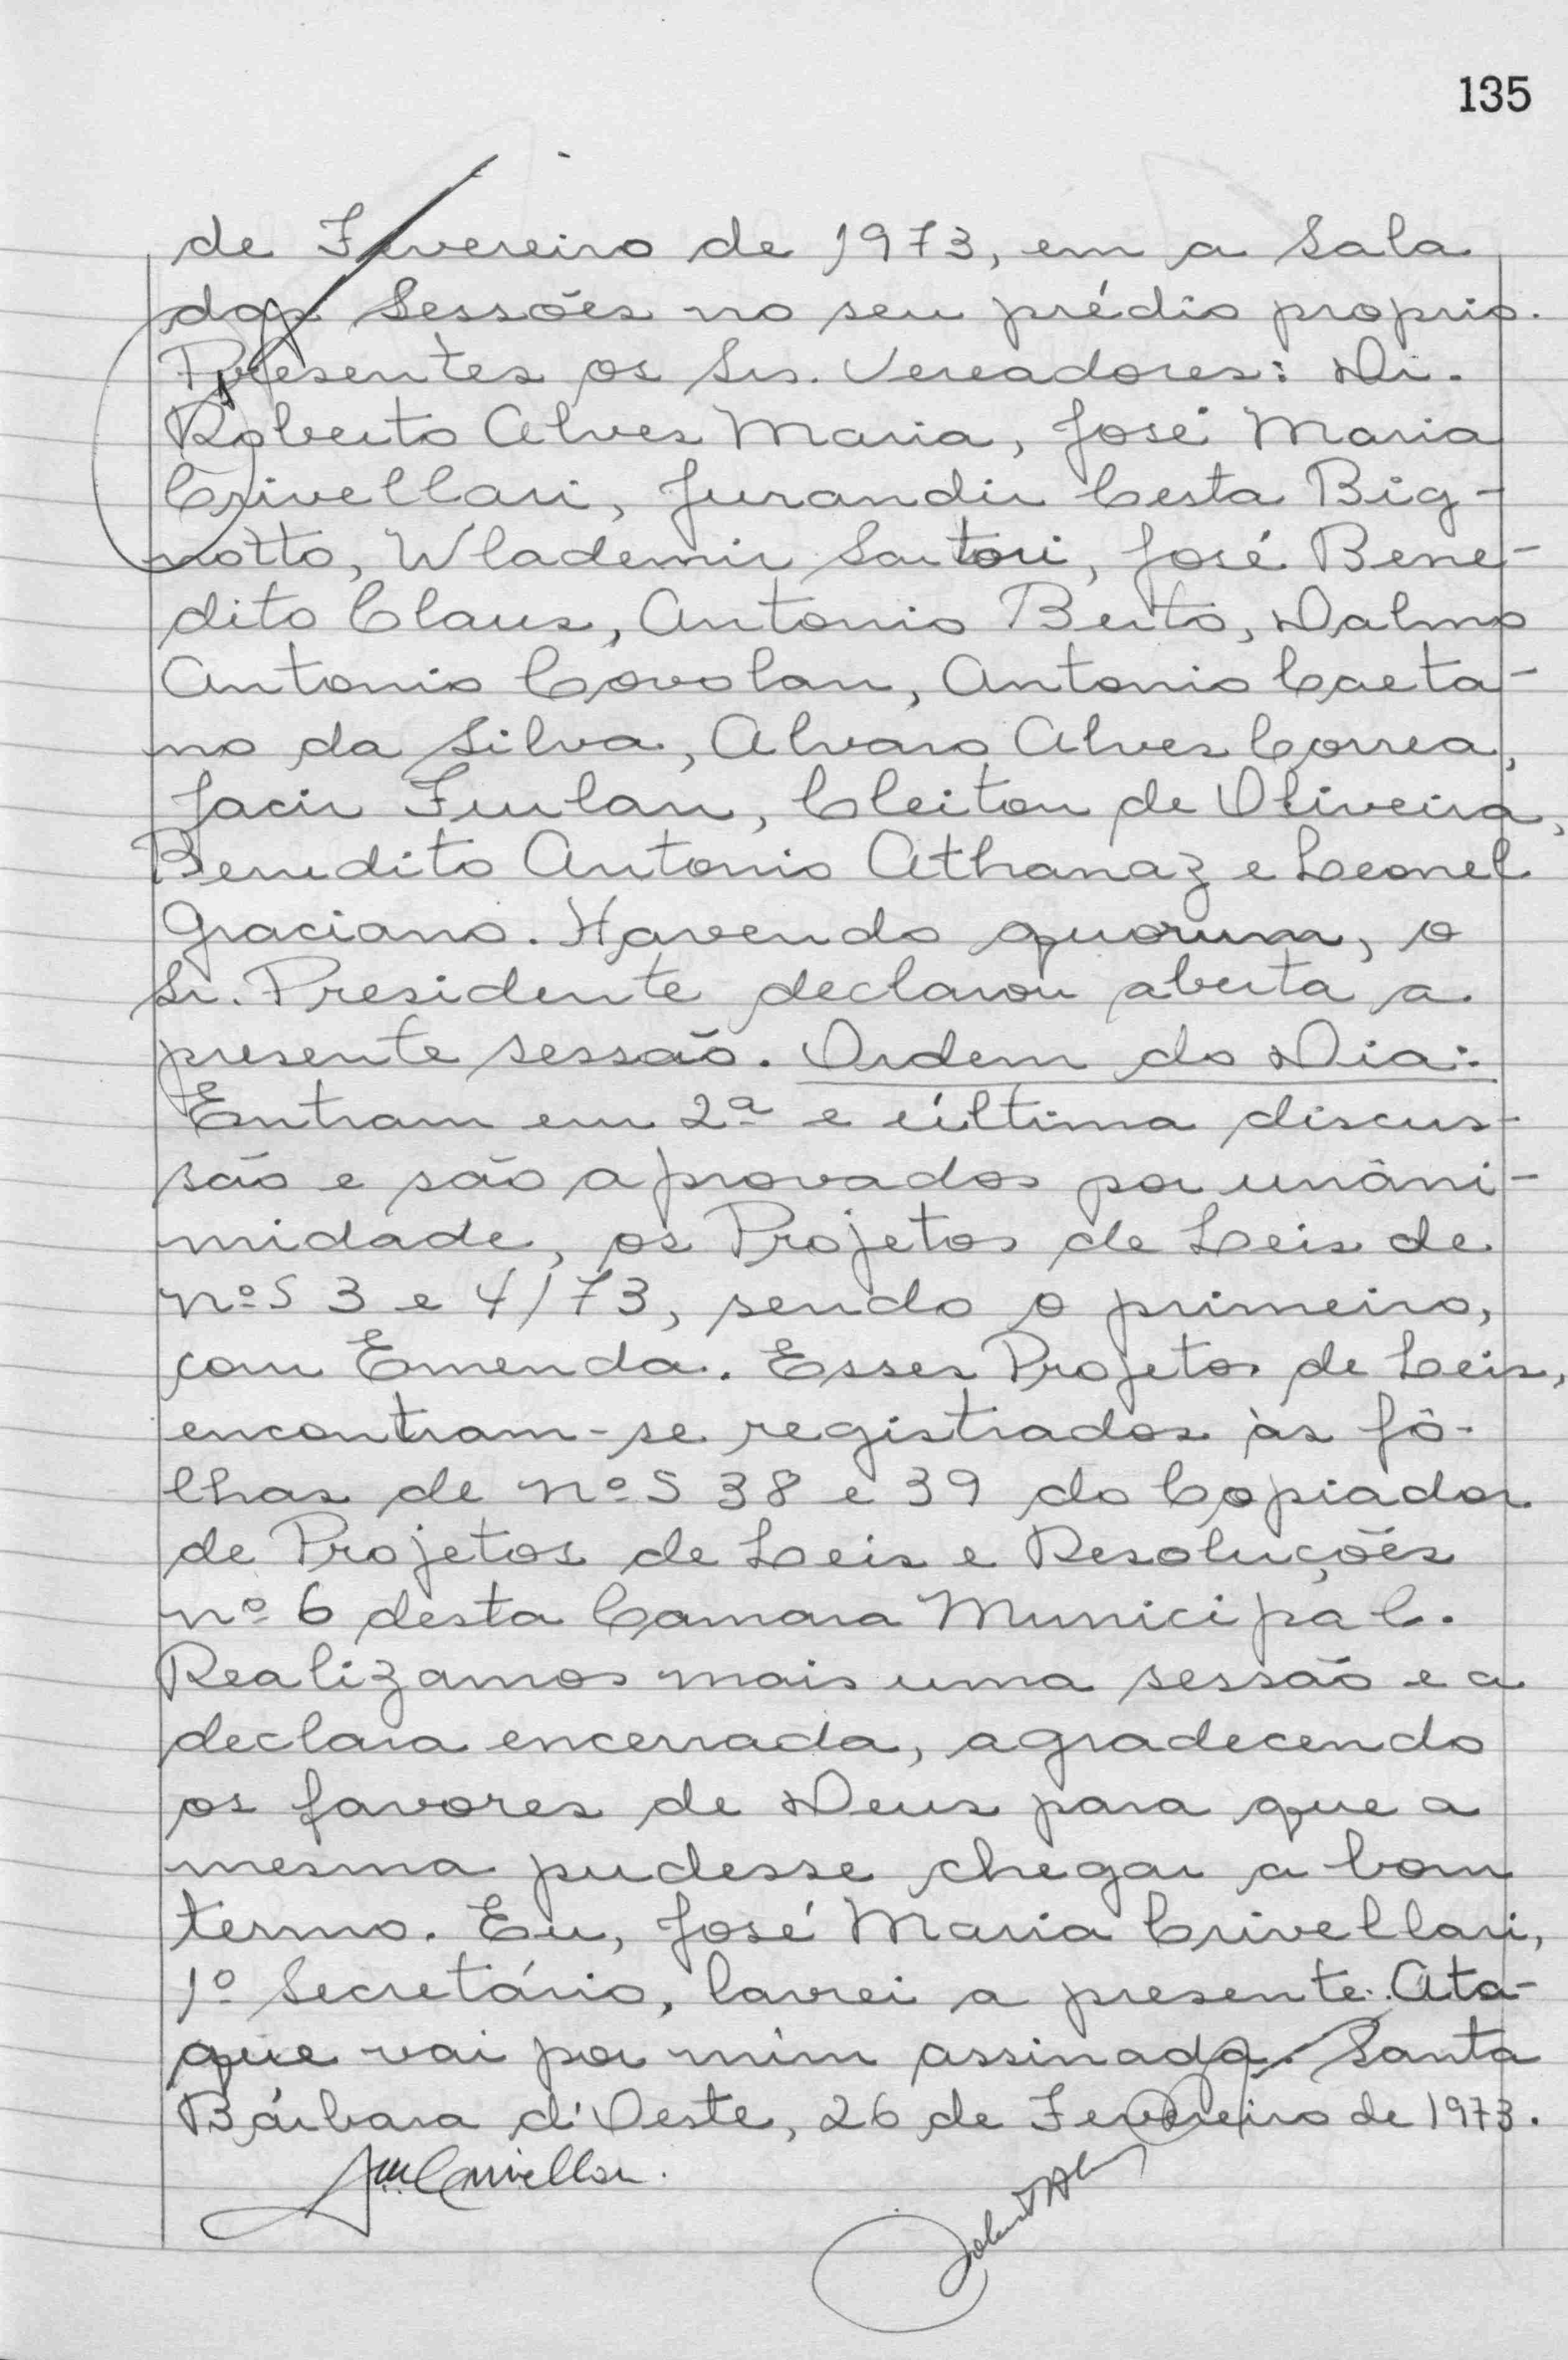 135
de Fevereiro de 1973, em a Sala
das Sessões no seu prédio proprio.
Presentes os Srs. Vereadores: Dr.
Roberto Alves Maria, José Maria
Crivellari, Jurandir Cesta Big-
notto, Wlademir Sartori, José Bene-
dito Claus, Antonio Berto, Dalmo
Antonio Covolan, Antonio Caeta-
no da Silva, Alvaro Alves Correa,
Jacir Furlan, Cleiton de Oliveira,
Benedito Antonio Athanaz e Leonel
Graciano. Havendo quorum, o
Sr. Presidente declarou aberta a
presente sessão. Ordem do Dia:
Entram em 2ª e última discus-
são e são aprovados por unâni-
midade, os Projetos de Leis de
nºs 3 e 4/73, sendo o primeiro,
com Emenda. Esses Projetos de Leis,
encontram-se registrados às fô-
lhas de nºs 38 e 39 do Copiador
de Projetos de Leis e Resoluções
nº 6 desta Camara Municipal.
Realizamos mais uma sessão e a
declara encerrada, agradecendo
os favores de Deus para que a
mesma pudesse chegar a bom
termo. Eu, José Maria Crivellari,
1º Secretário, lavrei a presente Ata-
que vai por mim assinada. Santa
Bárbara d'Oeste, 26 de Fevereiro de 1973.